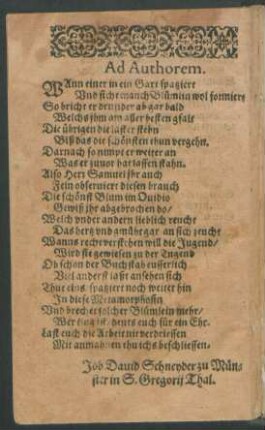 Ad Authorem.
WAnn einer in ein Gart spatziert
Vnd sicht manch Blümlin wol formiert
So bricht er deren der ab gar bald
Welchs jhm am aller besten gfalt
Die übrigen die laßt er stehn
Biß das die schönsten thun vergehn.
Darnach so nimpt er weiter an
Was er zuuor hat lassen stahn.
Also Herr Samuel jhr auch
Fein obseruiert diesen brauch
Die schönst Blum im Ouidio
Gewiß jhr abgebrochen do/
Welch vnder andern lieblich reucht
Das hertz vnd gmüht gar an sich zeucht
Wanns recht verstehen will die Jugend/
Wird sie gewiesen zu der Tugend
Ob schon der Buchstab eusserlich
Viel anderst laßt ansehen sich
Thut eins spatziert noch weiter hin
In diese Metamorphosin
Vnd brecht solcher Blümlein mehr/
Wer deuts euch für ein Ehr.
Last euch die Arbeit nit verdriessen
Mit anmahnen thu ichs beschliessen.
Job Dauid Schneyder zu Mün-
ster in S. Gregorij Thal.